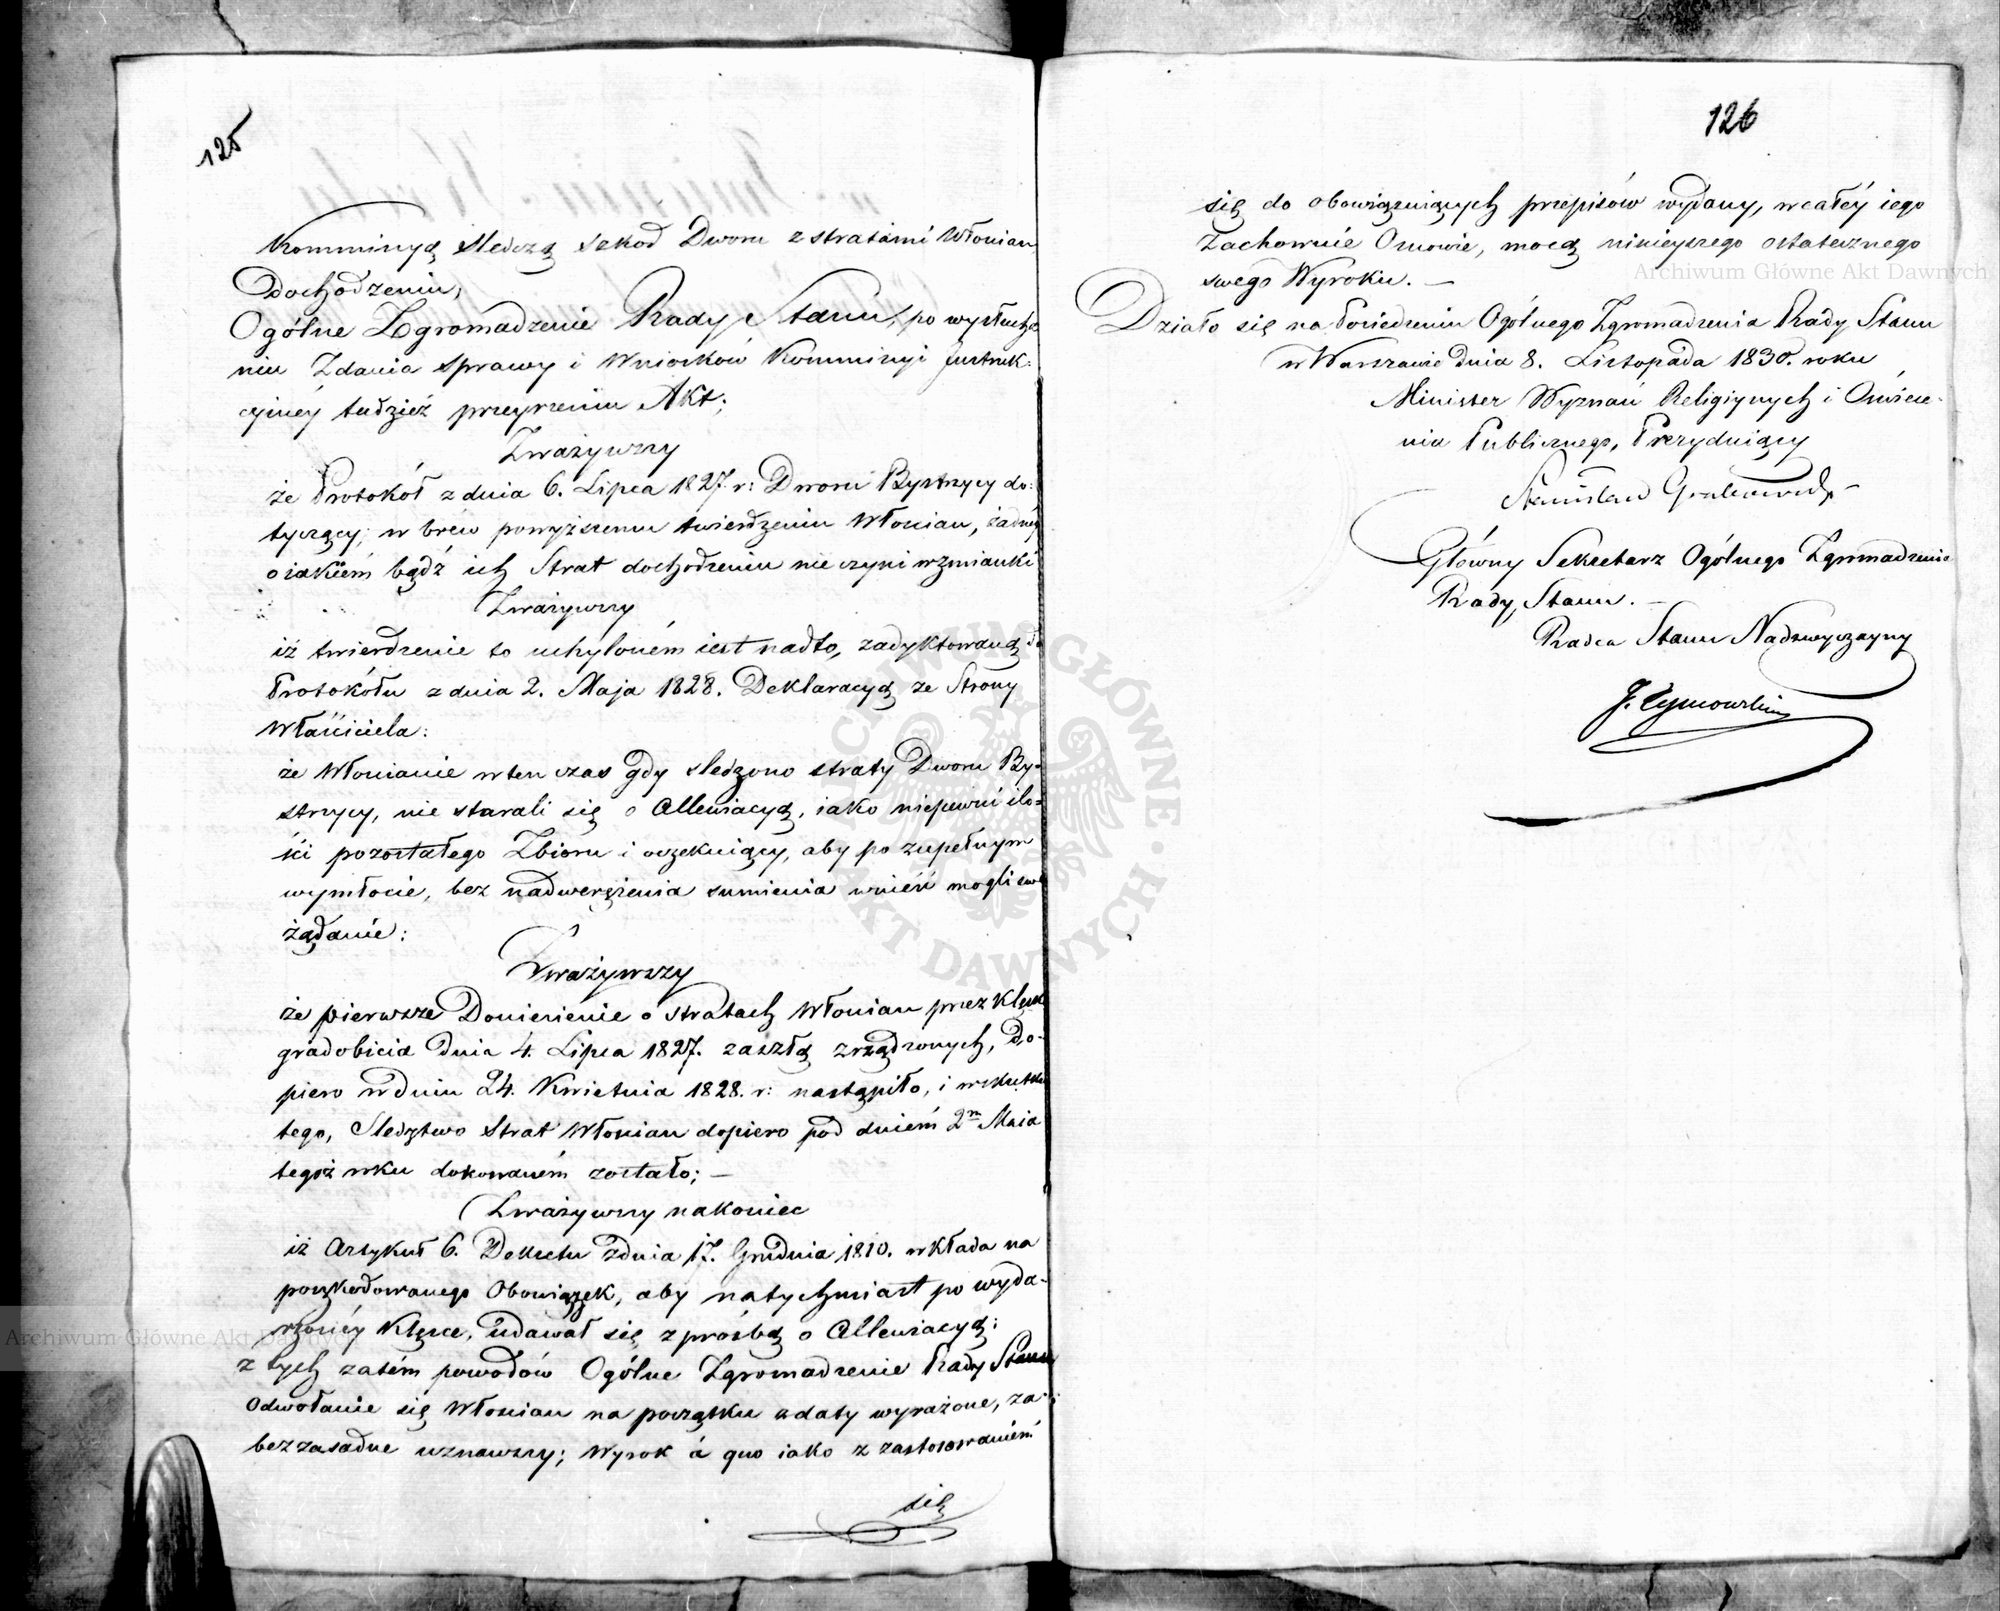 125
Kommissyą śledczą szkod Dworu z stratami Włościan
Dochodzeniu,
Ogólne Zgromadzenie Rady Stanu, po wysłucha
niu Zdania sprawy i Wniosków Kommissyi Jnstruk:
cyinéy tudzież przeyrzeniu Akt;
Zważywszy
że Protokół z dnia 6. Lipca 1827 r: Dworu Bystrzycy do:
tyczący, w brew powyższemu twierdzeniu Włościan, żadnéy
o iakiém bądź ich Strat dochodzeniu nie czyni wzmianki
Zważywszy
iż twierdzenie to uchyloném iest nadto, zadyktowaną do
Protokółu z dnia 2. Maja 1828. Deklaracyą ze Strony
Właściciela:
że Włościanie w ten czas gdy śledzono straty Dworu By-
strzycy, nie starali się o Allewiacyą, iako niepewni ilo-
ści pozostałego Zbioru i oczekuiący, aby po zupełnym
wymłocie, bez nadwerężenia sumienia wnieść mogli swe
żądanie:
Zważywszy
że pierwsze Doniesienie o stratach Włościan przez Klęskę
gradobicia dnia 4. Lipca 1827. zaszłą zrządzonych, do-
piero w dniu 24. Kwietnia 1828. r: nastąpiło, i w skutku
tego, Śledztwo Strat Włościan dopiero pod dniém 2m Maia
tegoż roku dokonaném zostało; —
Zważywszy nakoniec
iż Artykuł 6. Dekretu z dnia 17. Grudnia 1810. wkłada na
poszkodowanego Obowiązek, aby natychmiast po wyda-
rzonéy Klęsce, udawał się z prośbą o Allewiacyą;
z tych zatém powodów Ogólne Zgromadzenie Rady Stanu
Odwołanie się Włościan na początku z daty wyrażone, za
bezzasadne uznawszy; Wyrok á quo iako z zastosowaniém
się
126
się do obowiązuiących przepisów wydany, w całéy iego
Zachowuie Osnowie, mocą ninieyszego ostatecznego
swego Wyroku. —
Działo się na Posiedzeniu Ogólnego Zgromadzenia Rady Stanu
w Warszawie dnia 8. Listopada 1830. roku
Minister Wyznań Religiynych i Oświece-
nia Publicznego, Prezyduiący
Stanisław Grabowski
Główny Sekretarz Ogólnego Zgromadzenia
Rady Stanu. —
Radca Stanu Nadzwyczayny
J. Tymowski
Archiwum Główne Akt Dawnych
Archiwum Główne Akt Dawnych
ARCHIWUM GŁÓWNE AKT DAWNYCH